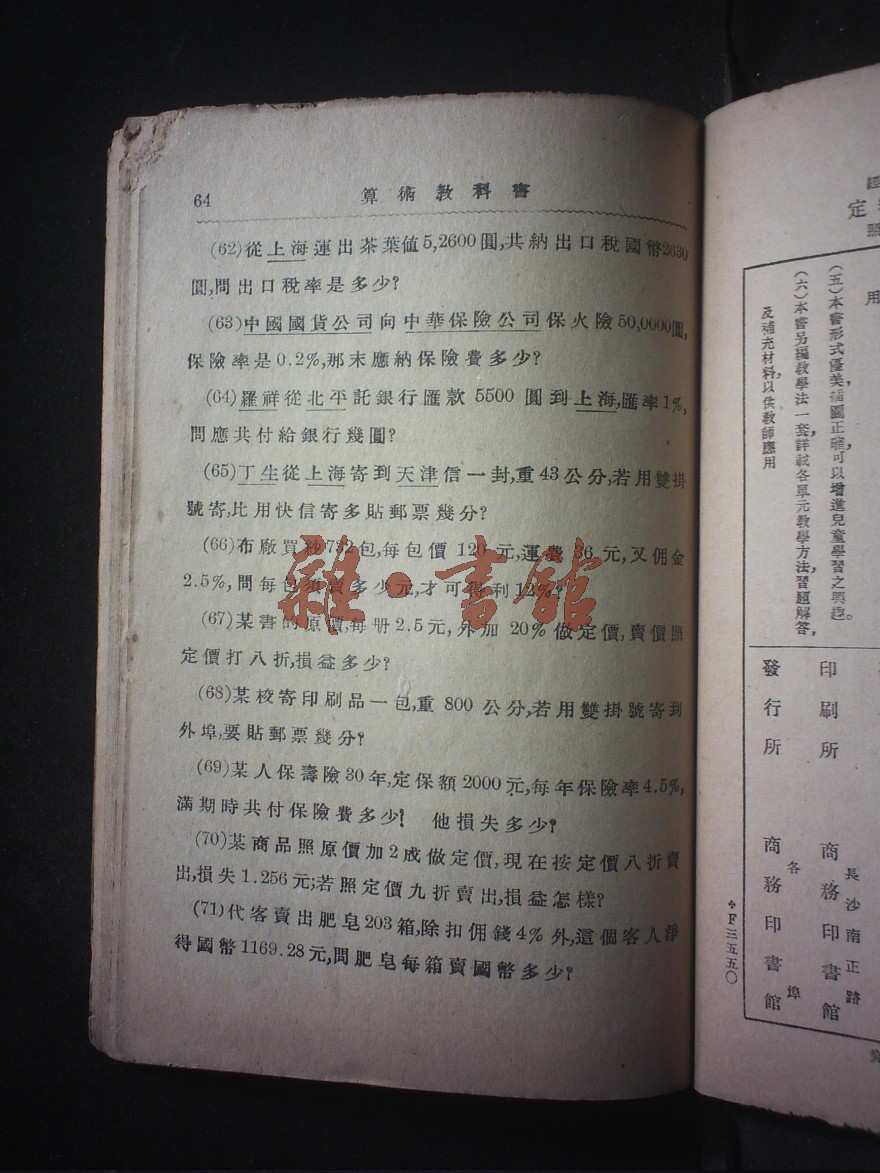 64
算術教科書
(62)從上海運出茶葉值5,2600圓,共納出口稅國幣2630
圓,問出口稅率是多少?
(63)中國國貨公司向中華保險公司保火險50,0000圓,
保險率是0.2%,那末應納保險費多少?
(64)羅祥從北平託銀行匯款 5500 圓到上海,匯率1%,
問應共付給銀行幾圓?
(65)丁生從上海寄到天津信一封,重43公分,若用雙掛
號寄,比用快信寄多貼郵票幾分?
(66)布廠買紗732包,每包價 120 元,運費 36 元,又佣金
2.5%,問每包須賣多少元,才可得利12%?
(67)某書的原價,每册2.5元,外加 20% 做定價,賣價照
定價打八折,損益多少?
(68)某校寄印刷品一包,重 800 公分,若用雙掛號寄到
外埠,要貼郵票幾分?
(69)某人保壽險30年,定保額2000元,每年保險率4.5%,
滿期時共付保險費多少? 他損失多少?
(70)某商品照原價加2成做定價,現在按定價八折賣
出,損失1.256元;若照定價九折賣出,損益怎樣?
(71)代客賣出肥皂203箱,除扣佣錢4%外,這個客人淨
得國幣1169.28元,問肥皂每箱賣國幣多少?
雜·書館
定
照
用
(五)本書形式優美,插圖正確,可以增進兒童學習之興趣。
(六)本書另編教學法一套,詳載各單元教學方法,習題解答,
及補充材料,以供教師應用
印刷所 商務印書館
長沙南正路
發行所 商務印書館
各埠
F三五五〇